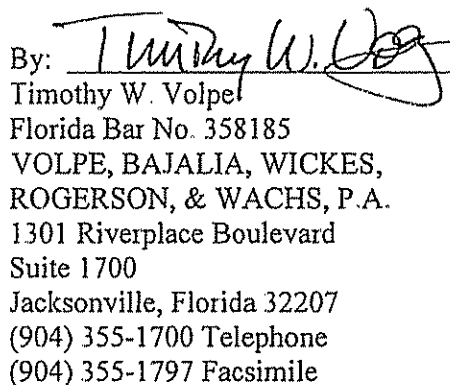 By: Timothy W. Volpe
Timothy W. Volpe
Florida Bar No. 358185
VOLPE, BAJALIA, WICKES,
ROGERSON, & WACHS, P.A.
1301 Riverplace Boulevard
Suite 1700
Jacksonville, Florida 32207
(904) 355-1700 Telephone
(904) 355-1797 Facsimile